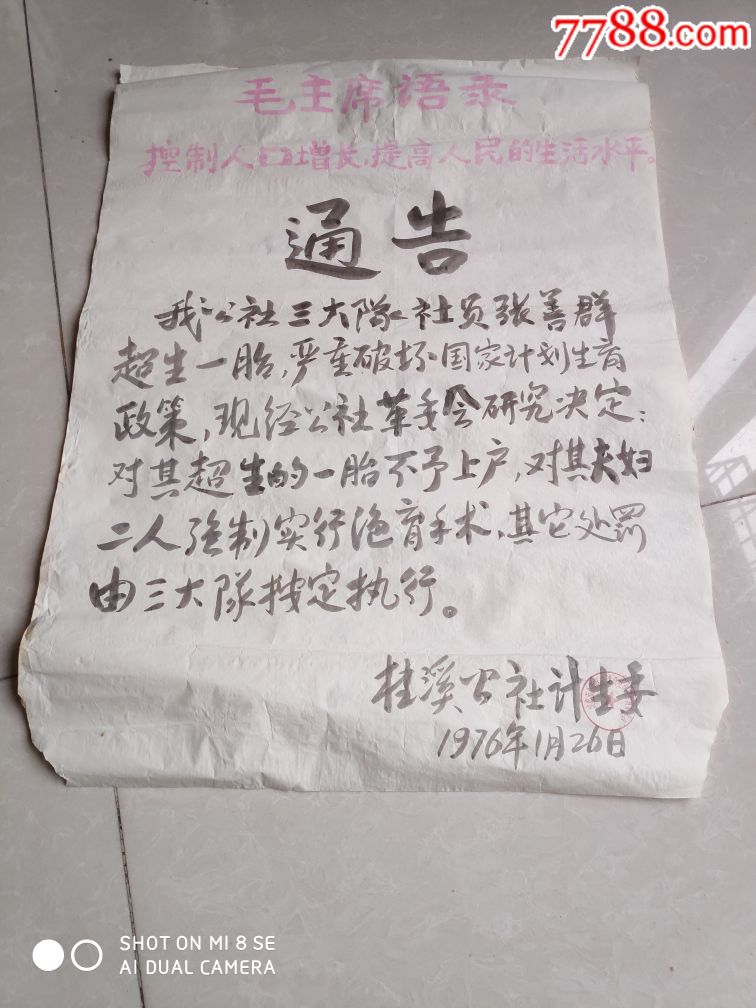 7788.com
毛主席语录
控制人口增长,提高人民的生活水平。
通告
我公社三大队社员张善群
超生一胎,严重破坏国家计划生育
政策,现经公社革委会研究决定:
对其超生的一胎不予上户,对其夫妇
二人强制实行绝育手术,其它处罚
由三大队按定执行。
桂溪公社计生委
1976年1月26日
SHOT ON MI 8 SE
AI DUAL CAMERA